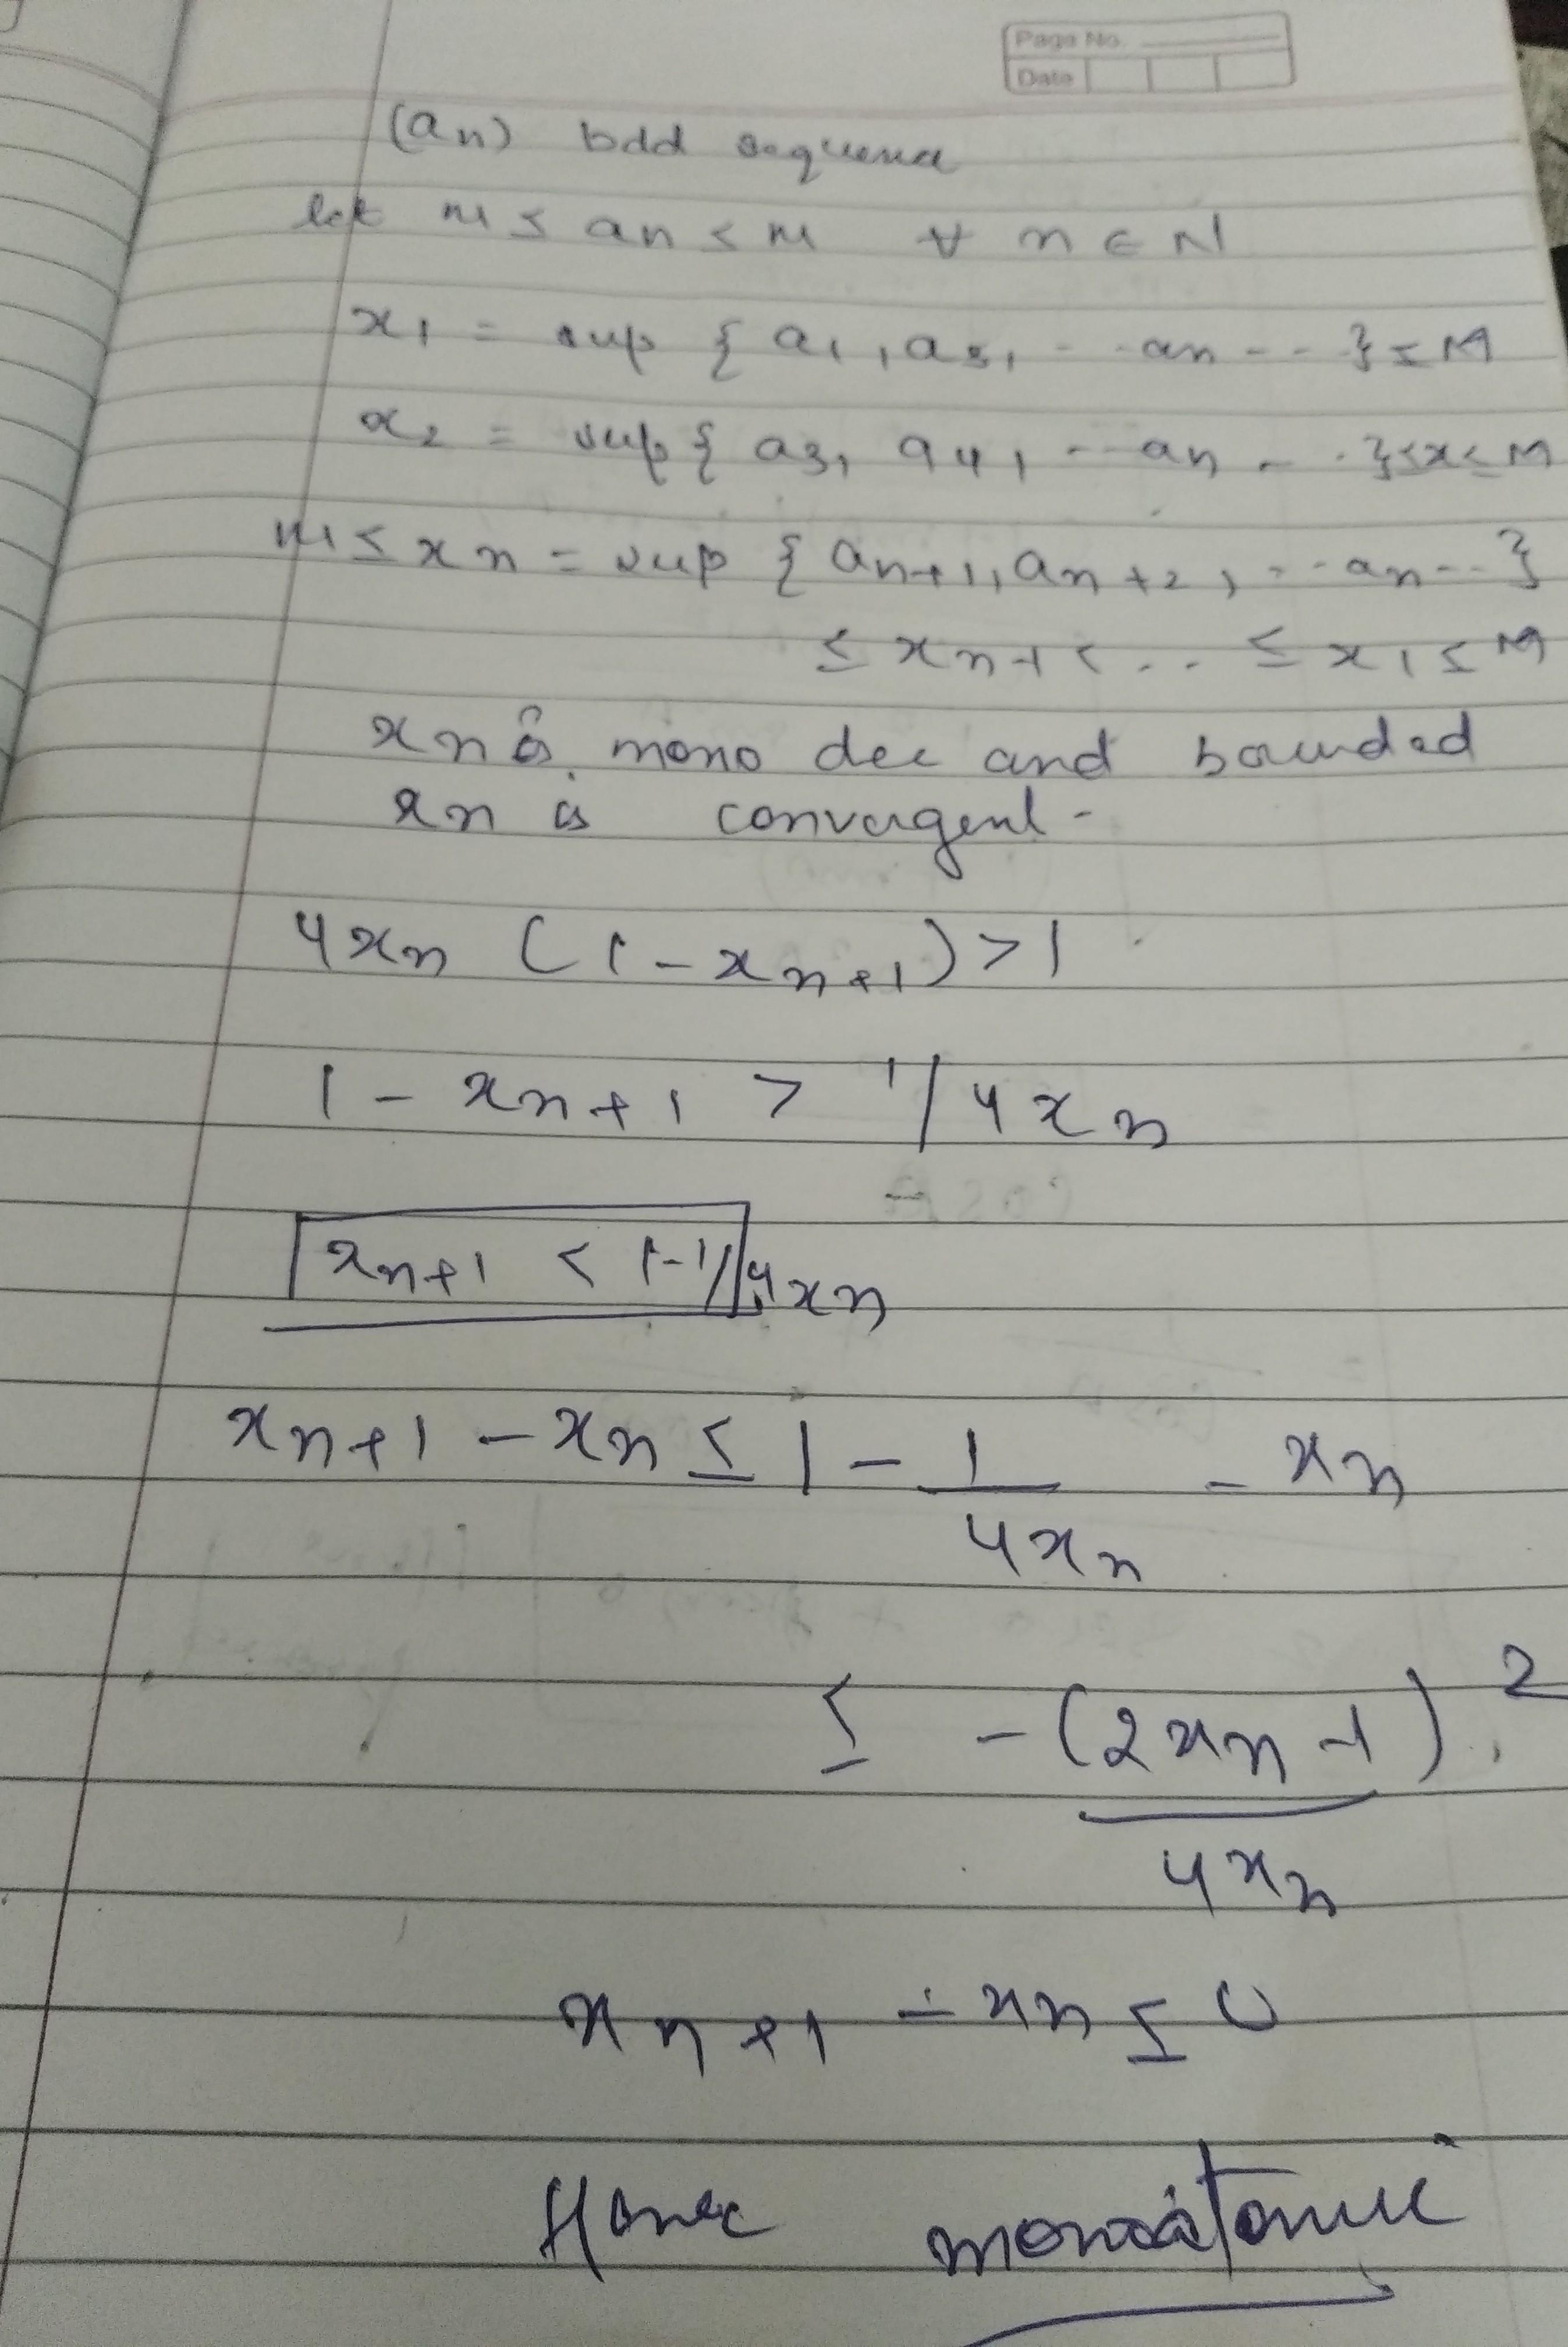 Page No.
Date
(an) bdd sequence
let m ≤ an ≤ M ∀ n ∈ N
x1 = sup { a1, a3, - - an - - - } ≤ M
x2 = sup { a3, a4, - - an - - } ≤ x ≤ M
m ≤ xn = sup { an+1, an+2, - - an - - }
≤ xn-1 < . . . ≤ x1 ≤ M
xn is mono dec and bounded
xn is convergent -
4xn (1 - xn+1) > 1
1 - xn+1 > 1/4xn
xn+1 < 1-1/4xn
xn+1 - xn ≤ 1 - 1/4xn - xn
≤ -(2xn-1)²/4xn
xn+1 - xn ≤ 0
Hence monotonic